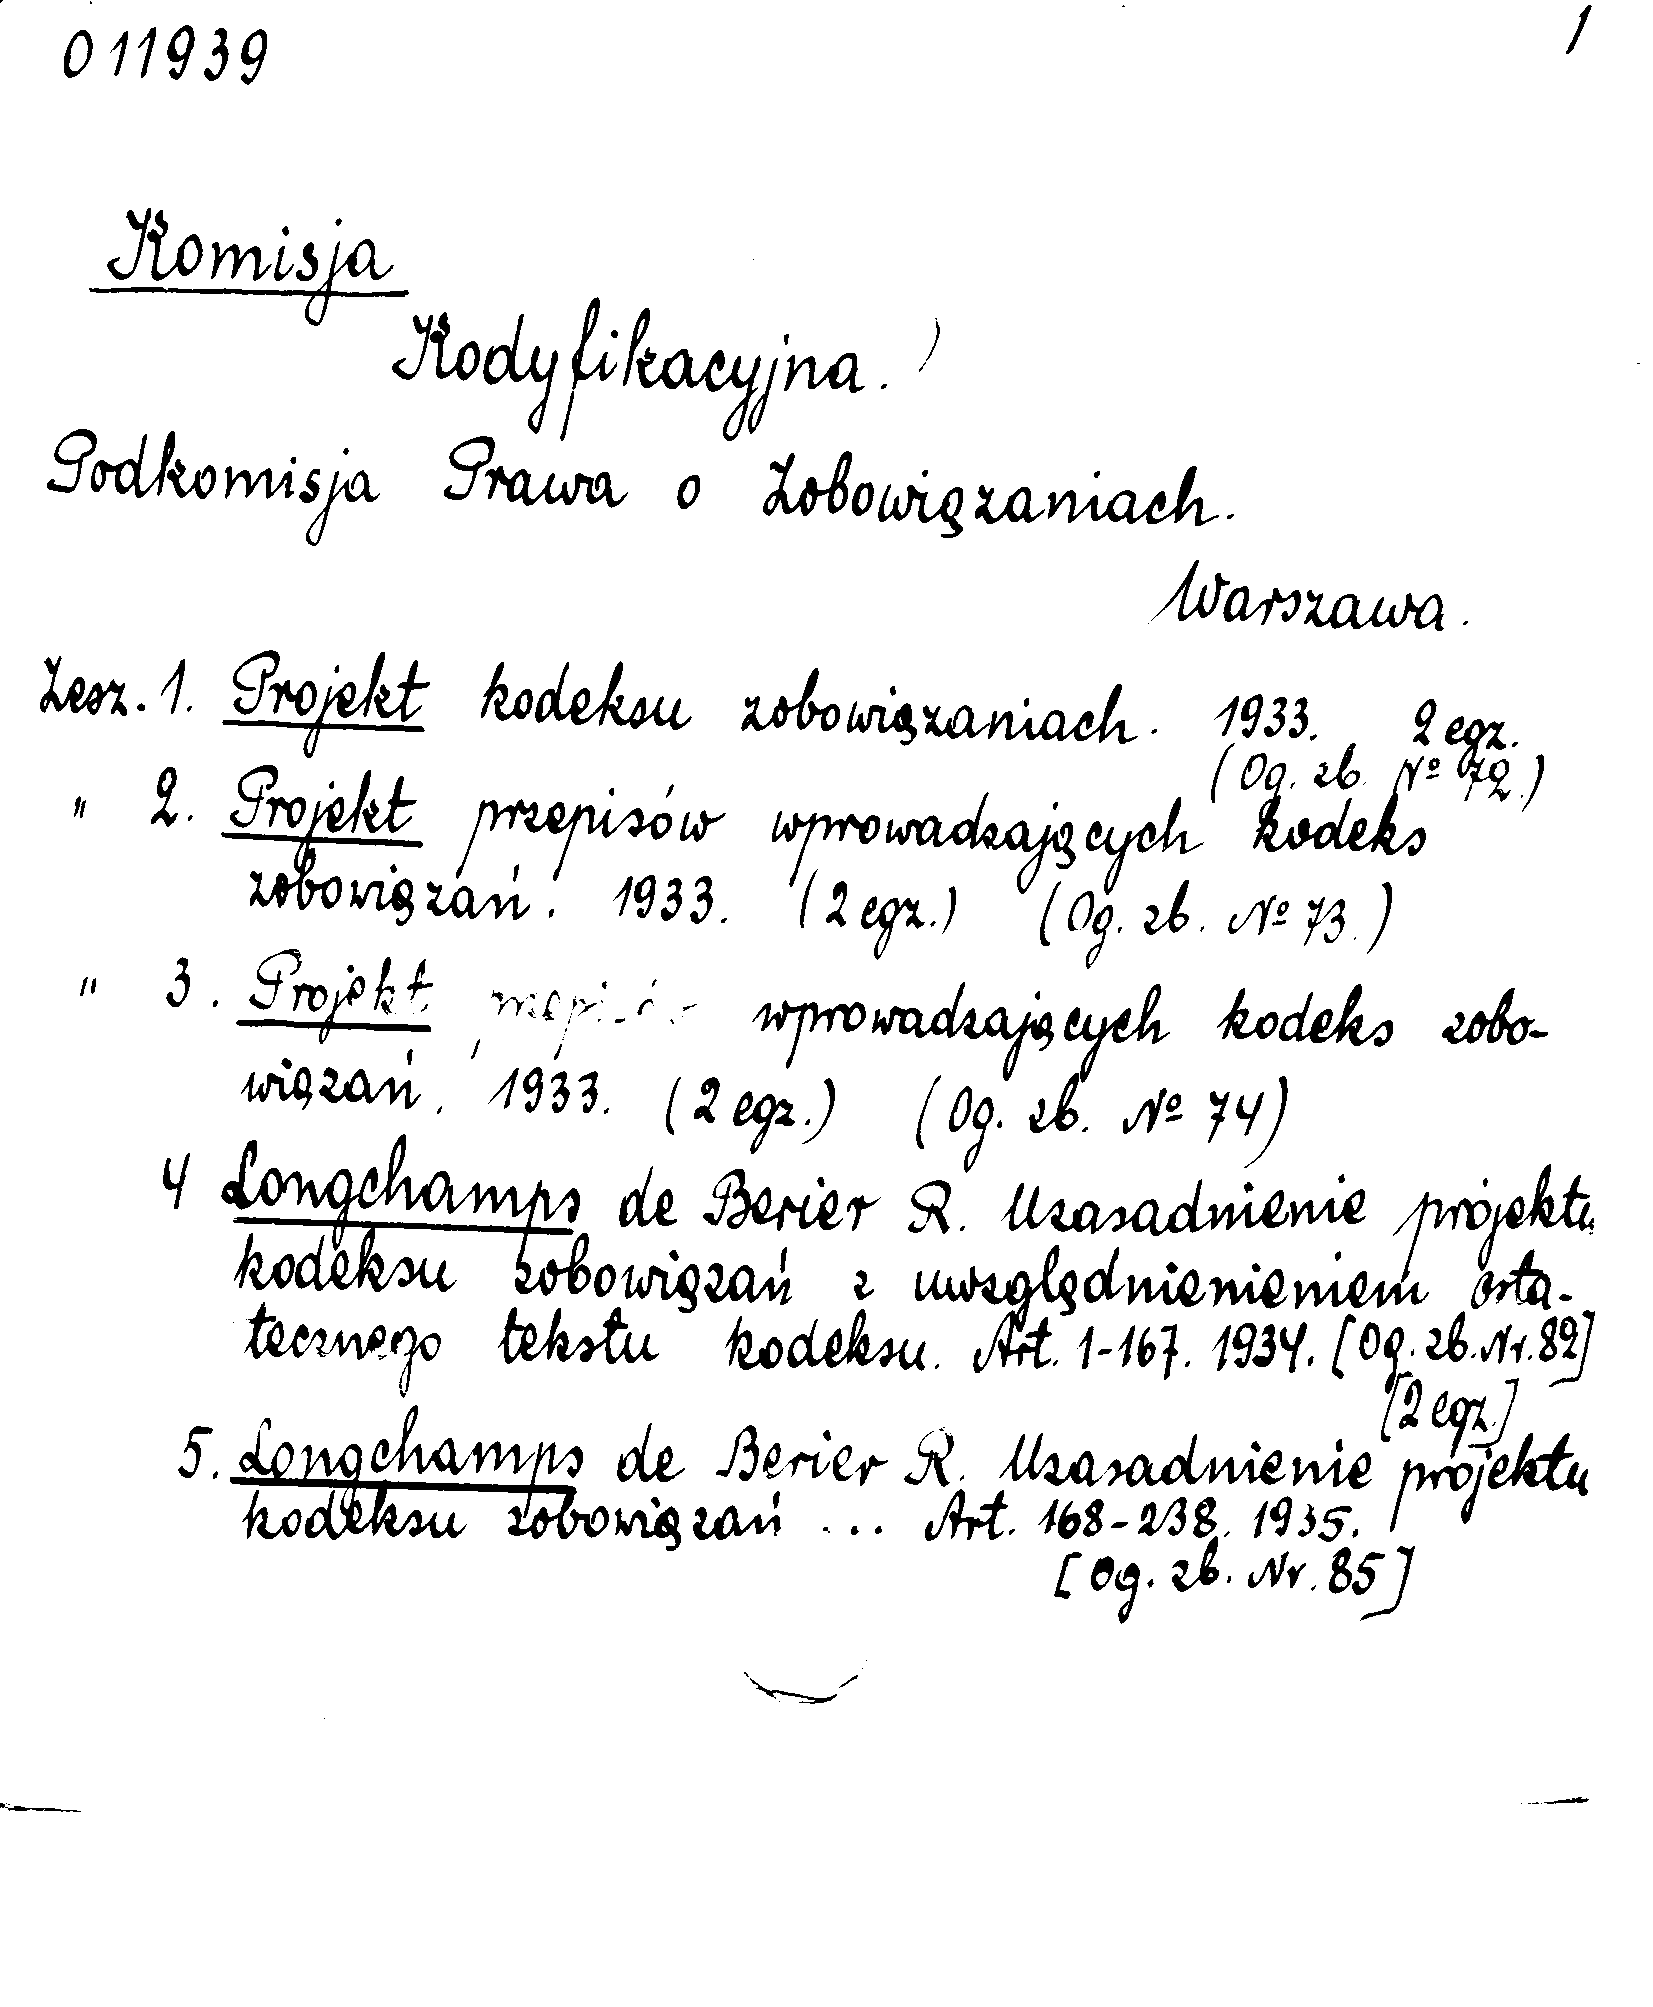 011939 1
Komisja
Kodyfikacyjna.
Podkomisja Prawa o Zobowiązaniach.
Warszawa.
Zesz. 1. Projekt kodeksu zobowiązaniach. 1933. 2 egz.
(Og. zb. № 72.)
" 2. Projekt przepisów wprowadzających kodeks
zobowiązań. 1933. (2 egz.) (Og. zb. № 73.)
" 3. Projekt przepisów wprowadzających kodeks zobo-
wiązań. 1933. (2 egz.) (Og. zb. № 74)
4 Longchamps de Berier R. Uzasadnienie projektu
kodeksu zobowiązań z uwzględnienieniem osta-
tecznego tekstu kodeksu. Art. 1-167. 1934. [Og. zb. Nr. 82]
[2 egz.]
5. Longchamps de Berier R. Uzasadnienie projektu
kodeksu zobowiązań ... Art. 168-238. 1935.
[Og. zb. Nr. 85]